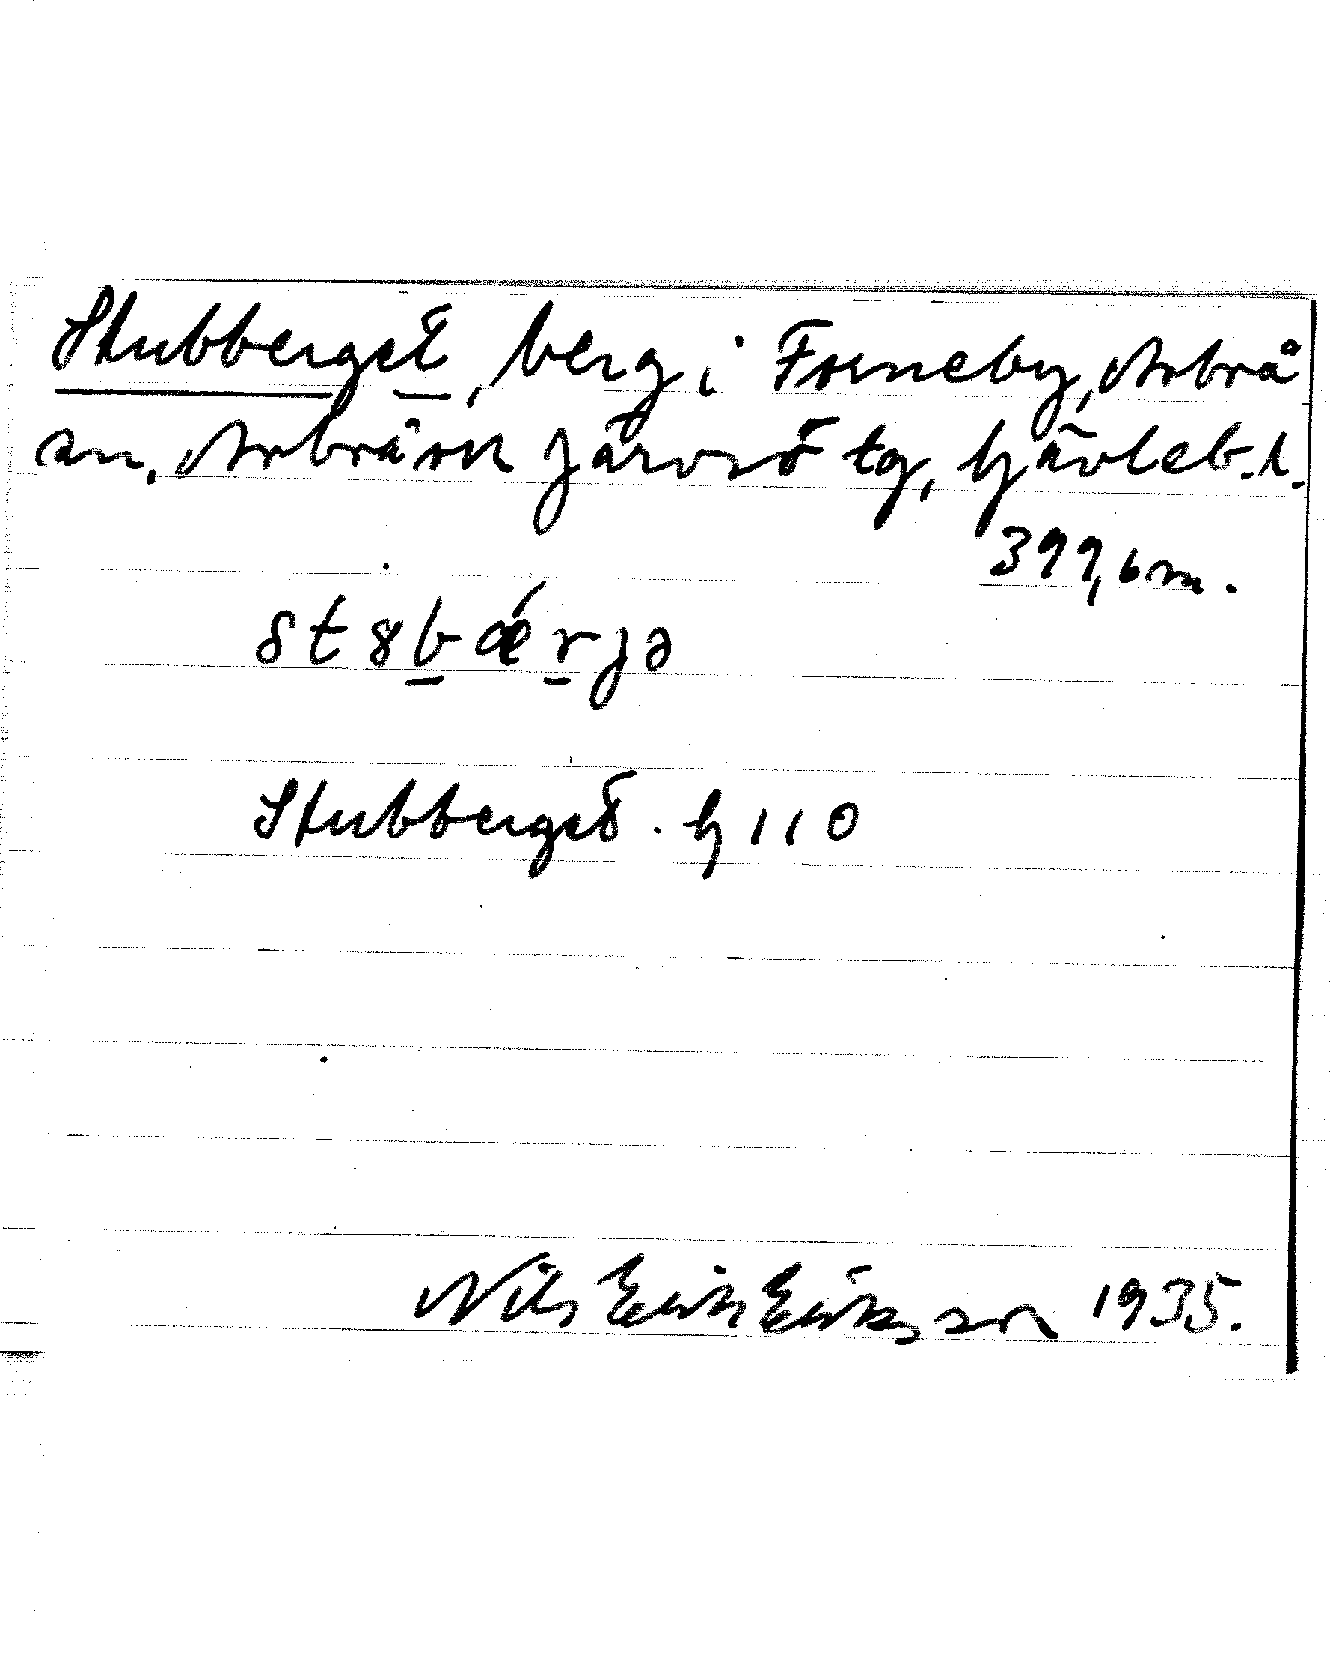 Stubberget, berg i Forneby, Arbrå
sn, Arbrå och Järvsö tg, Gävleb. l.
399,6 m.
st8bǽrjə
Stubberget. G 110
Nils Erik Eriksson 1935.